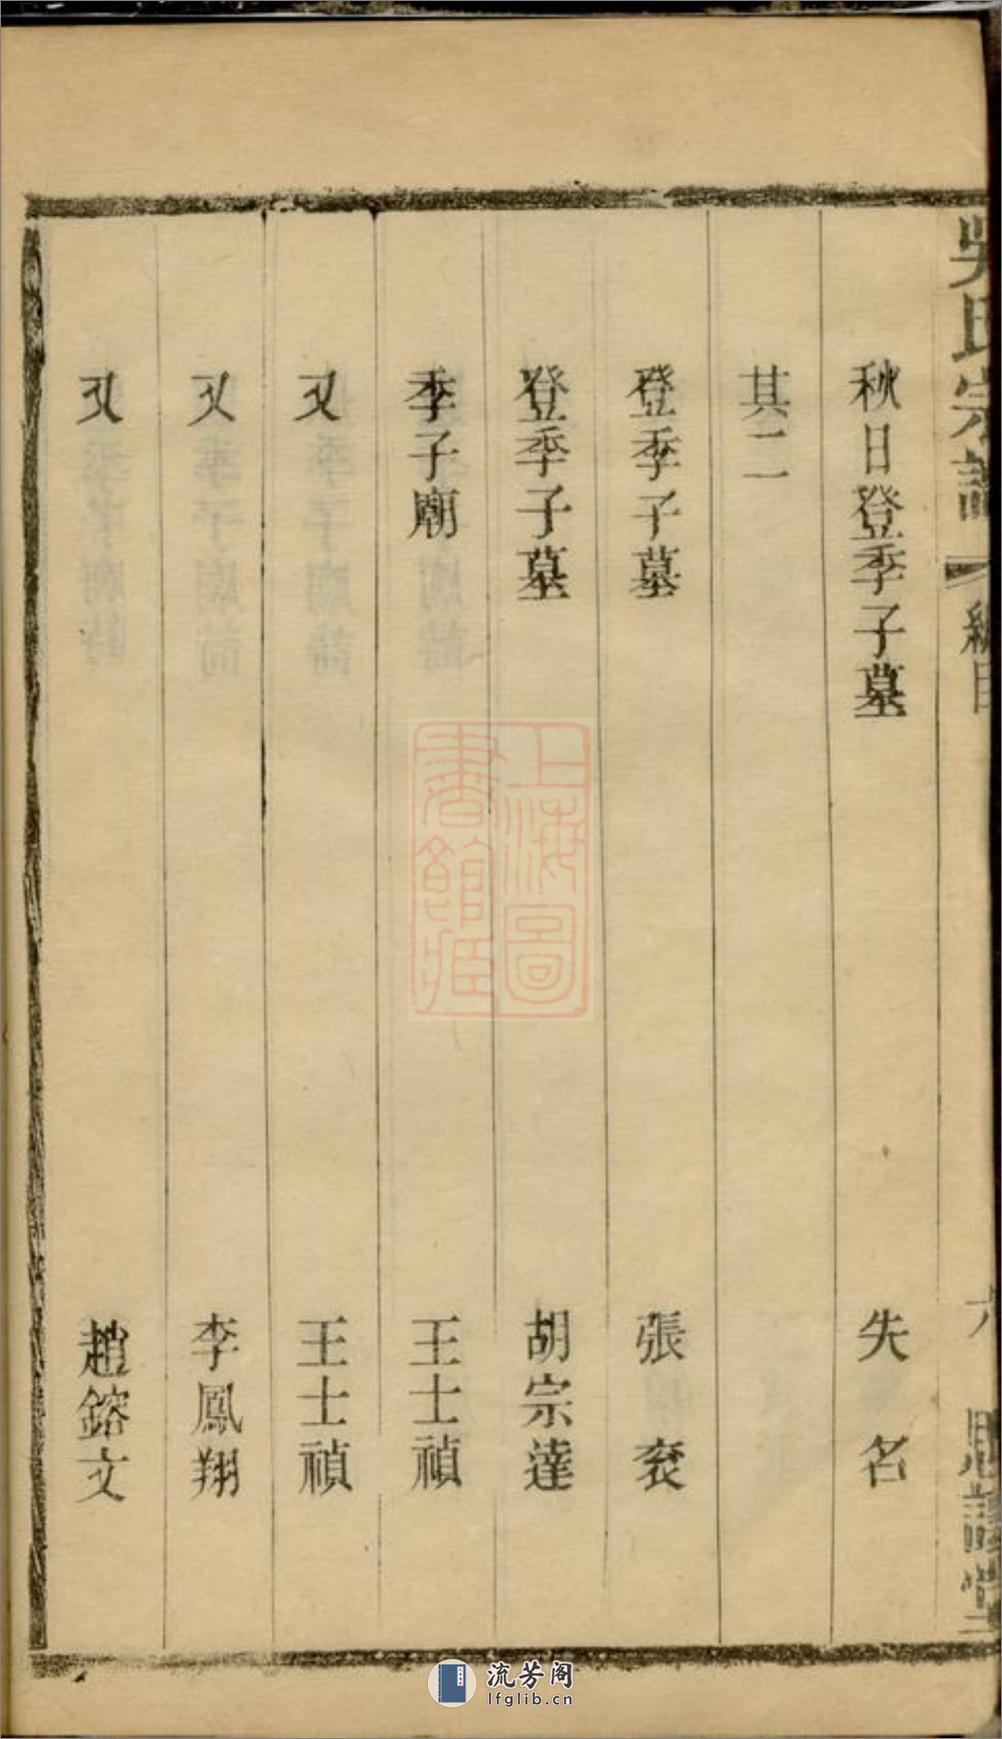 吳氏宗譜
總目
六
思讓堂
秋日登季子墓 失名
其二
登季子墓 張袞
登季子墓 胡宗達
季子廟 王士禎
又 王士禎
又 李鳳翔
又 趙鎔文
上海圖書館藏
流芳阁
lfglib.cn